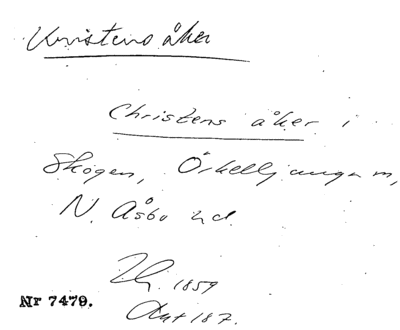 Kristens åker
Christens åker i
Skogen, Örkelljunga sn,
N. Åsbo hd.
1859
Nr 7479.
Akt 187.